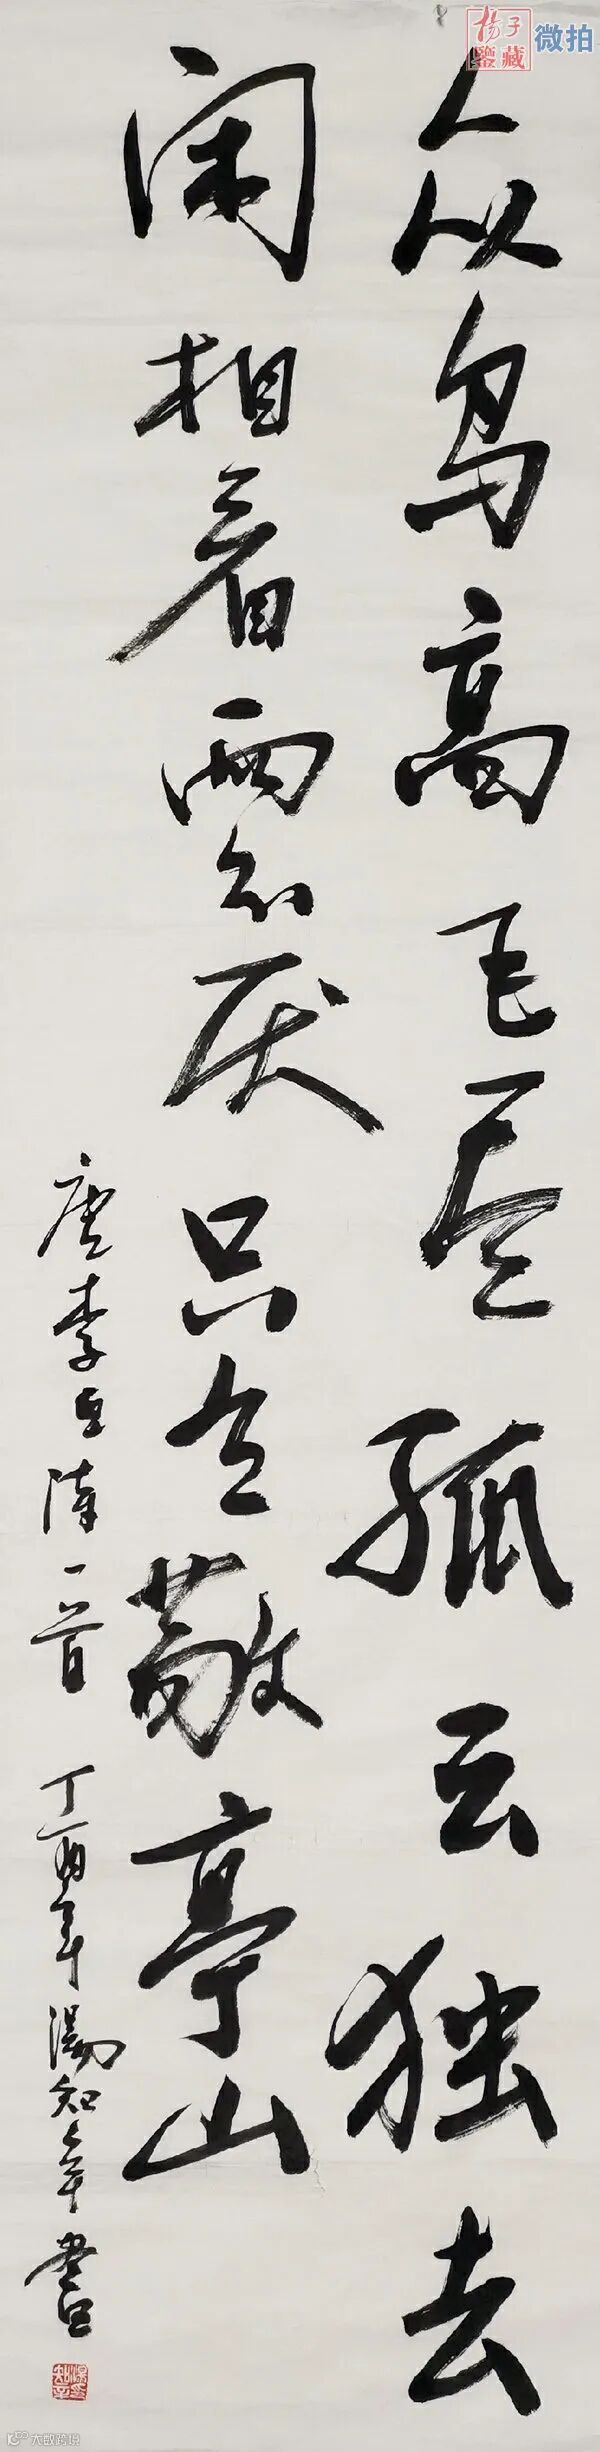 揚子鑒藏 微拍
众鸟高飞尽孤云独去
闲相看两不厌只有敬亭山
唐李白诗一首 丁酉年湯知章書
大数跨境